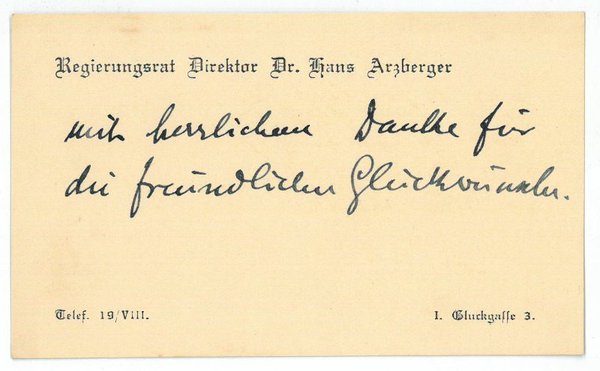 Regierungsrat Direktor Dr. Hans Arzberger
mit herzlichem Danke für
die freundlichen Glückwünsche.
Telef. 19/VIII.
I. Gluckgasse 3.